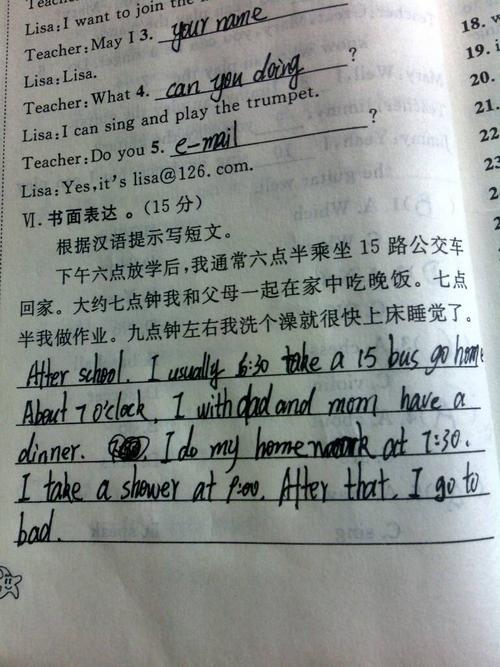 Lisa: I want to join the
Teacher: May I 3. your name
Lisa: Lisa.
Teacher: What 4. can you doing ?
Lisa: I can sing and play the trumpet.
Teacher: Do you 5. e-mail ?
Lisa: Yes, it's lisa@126.com.
Ⅵ. 书面表达。(15 分)
根据汉语提示写短文。
下午六点放学后,我通常六点半乘坐 15 路公交车
回家。大约七点钟我和父母一起在家中吃晚饭。七点
半我做作业。九点钟左右我洗个澡就很快上床睡觉了。
After school. I usually 6:30 take a 15 bus go home
About 7 o'clock, I with dad and mom have a
dinner. I do my homework at 7:30.
I take a shower at 9:00. After that, I go to
bad.
18. w
19. i
20.
21.
22
23
24
2